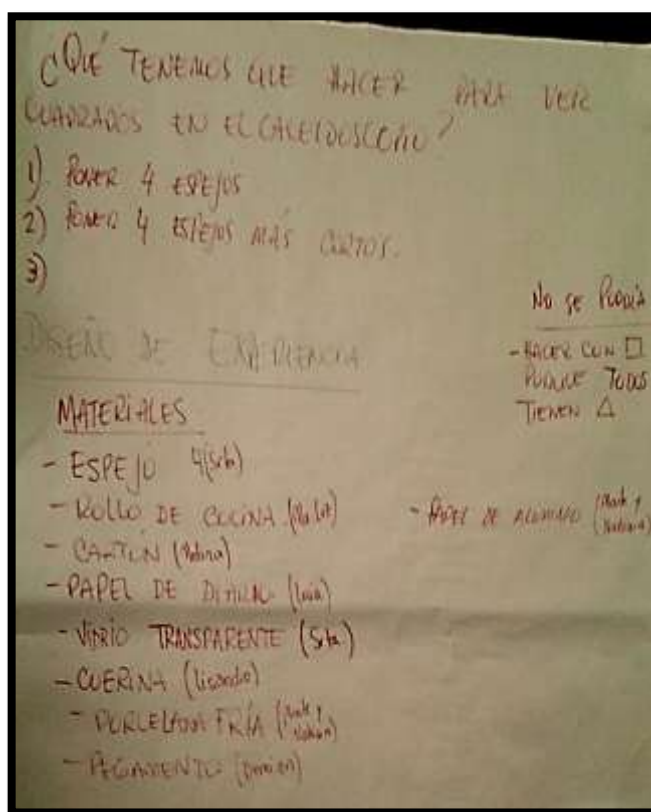 ¿QUÉ TENEMOS QUE HACER PARA VER
CUADRADOS EN EL CALEIDOSCOPIO?
1) PONER 4 ESPEJOS
2) PONER 4 ESPEJOS MÁS CORTOS.
3)
NO SE PODRÍA
- HACER CON □
PORQUE TODOS
TIENEN △
DISEÑO DE EXPERIENCIA
MATERIALES
- ESPEJO 4 (Srta)
- ROLLO DE COCINA
- PAPEL DE ALUMINIO
- CARTÓN
- PAPEL DE
- VIDRIO TRANSPARENTE (Srta)
- CUERINA (Lisandro)
- PORCELANA FRÍA
- PEGAMENTO (Damián)